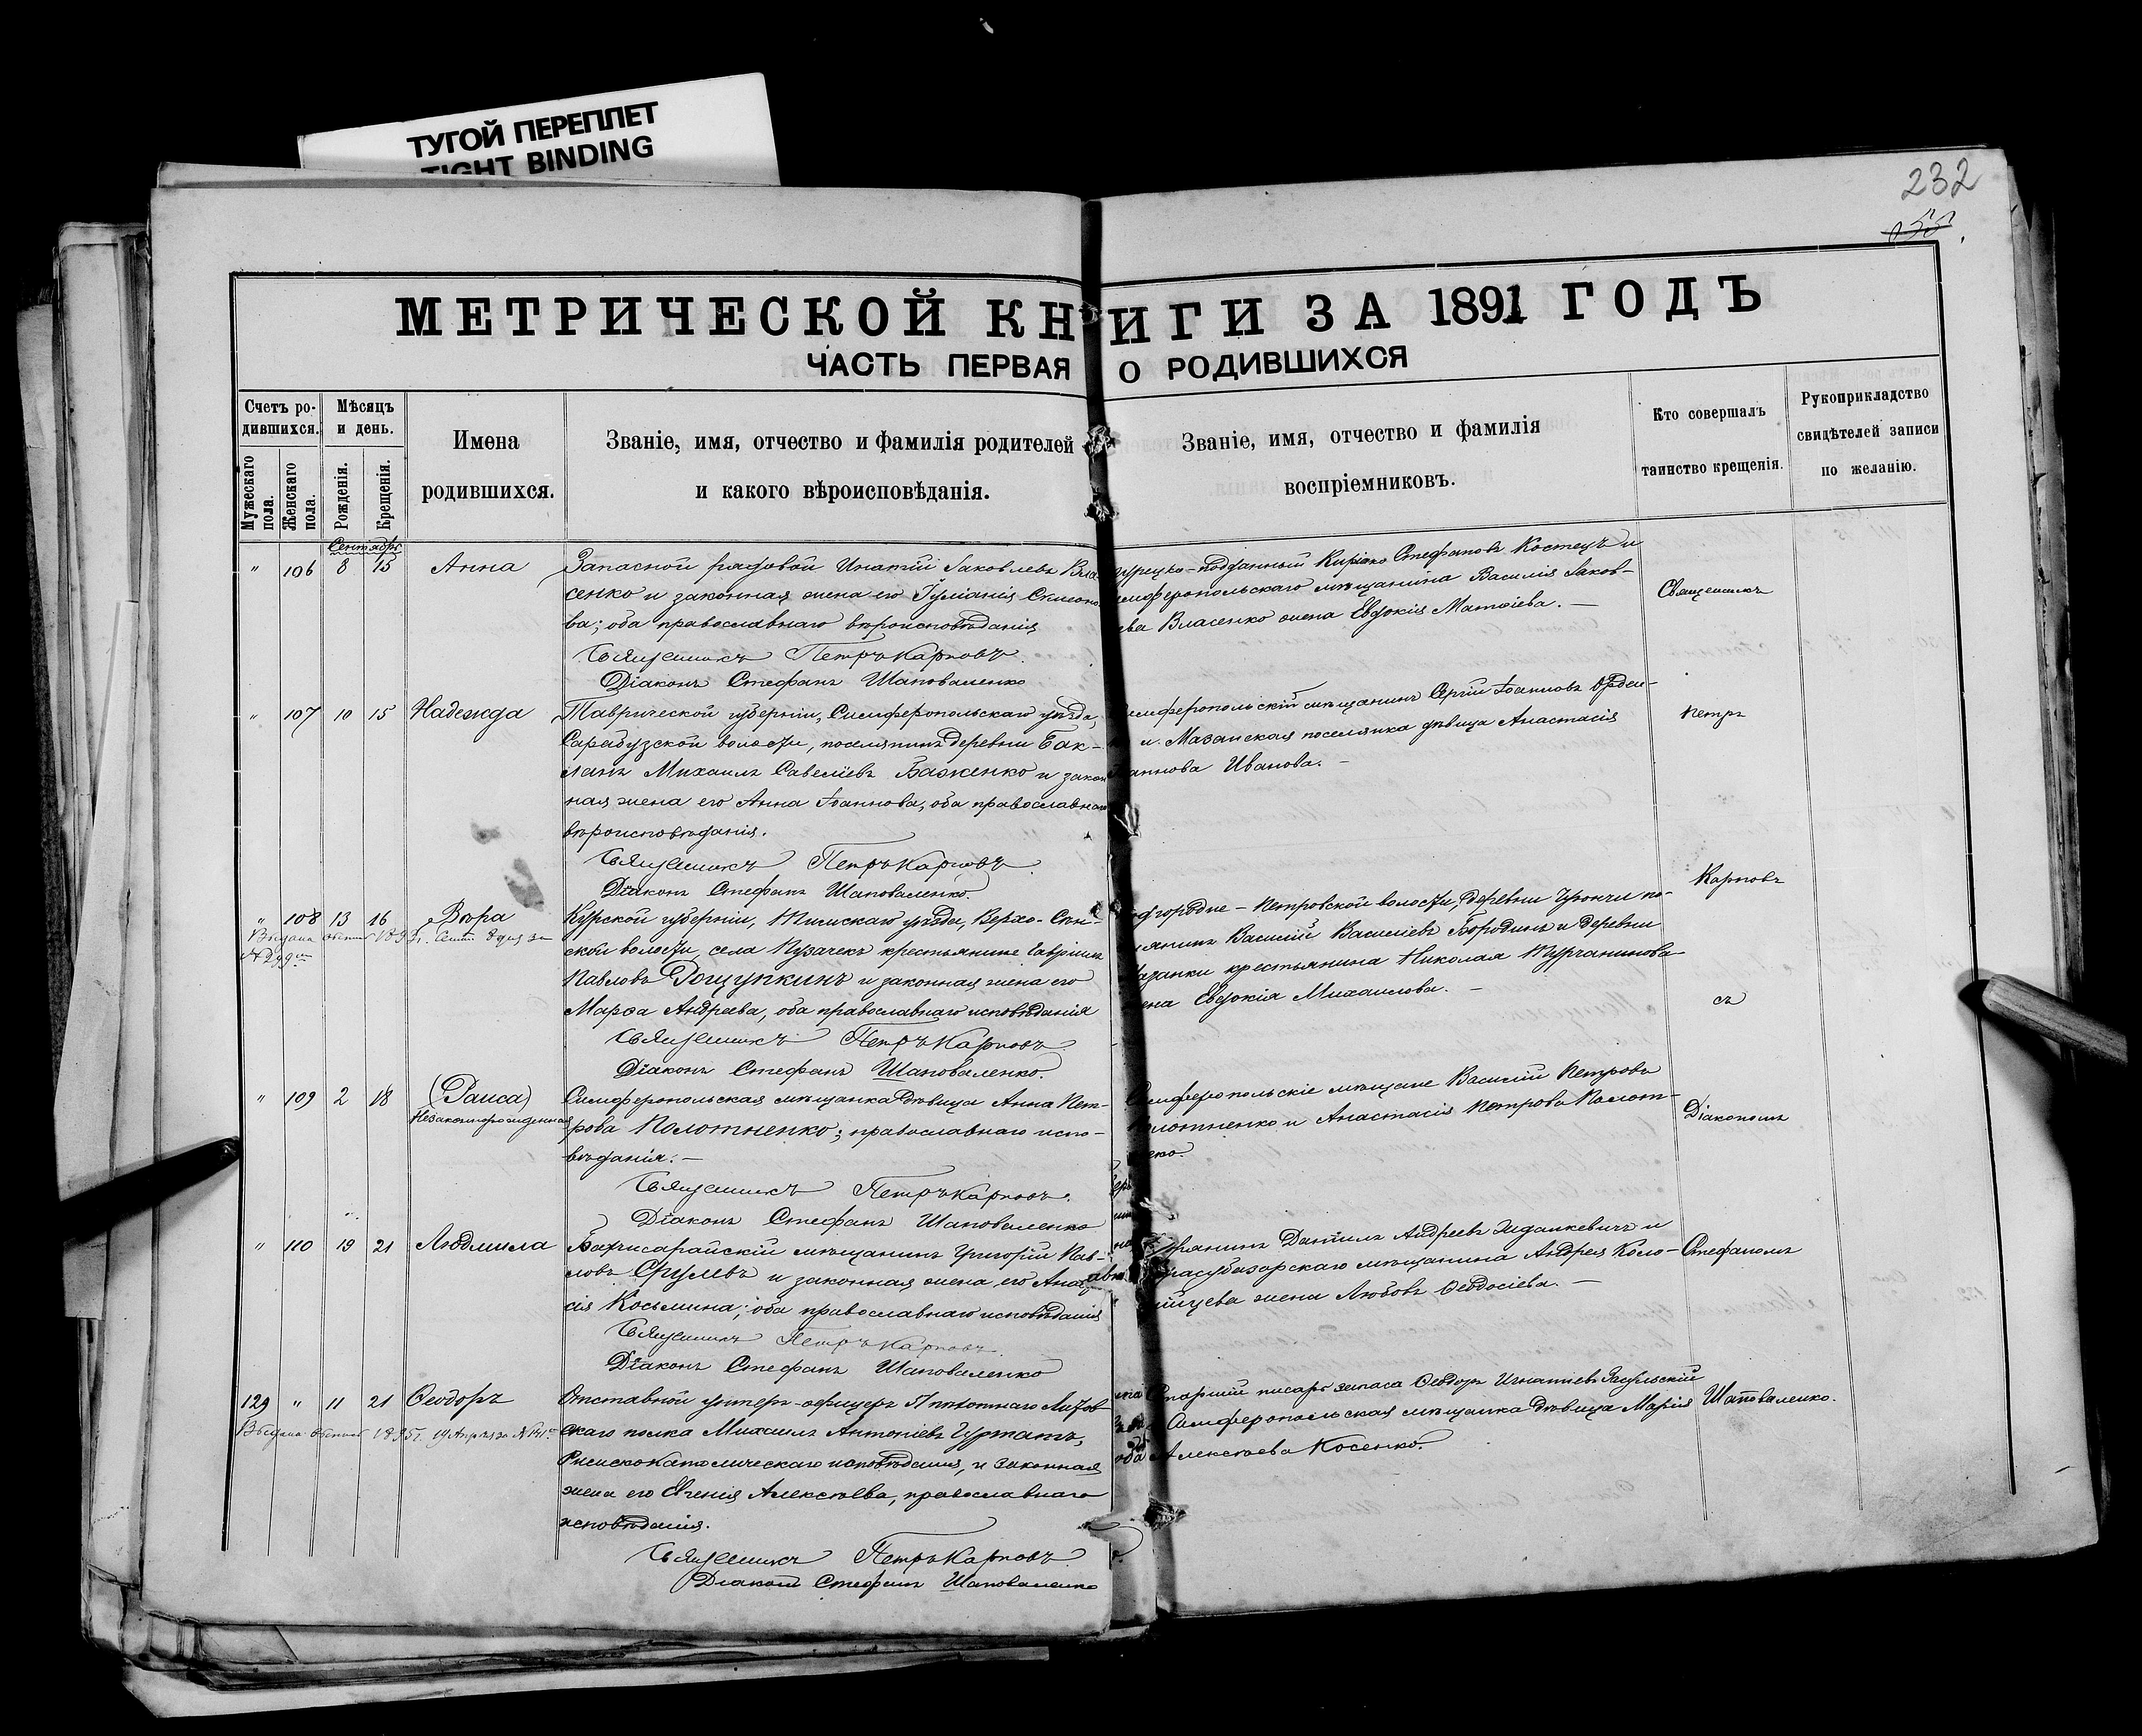 ТУГОЙ ПЕРЕПЛЕТ
TIGHT BINDING
232
МЕТРИЧЕСКОЙ КНИГИ ЗА 1891 ГОДЪ
ЧАСТЬ ПЕРВАЯ О РОДИВШИХСЯ
Счетъ ро-
дившихся.
Мужескаго пола.
Женскаго пола.
Мѣсяцъ
и день.
Рожденія.
Крещенія.
Имена
родившихся.
Званіе, имя, отчество и фамилія родителей
и какого вѣроисповѣданія.
Званіе, имя, отчество и фамилія
воспріемниковъ.
Кто совершалъ
таинство крещенія.
Рукоприкладство
свидѣтелей записи
по желанію.
Сентябрь
" 106 8 15 Анна
Запасной рядовой Игнатій Іаковлевъ Вла-
сенко и законная жена его Іуліанія Симеоно-
ва; оба православнаго вѣроисповѣданія
Священникъ Петръ Карповъ.
Діаконъ Стефанъ Шаповаленко
Турецко-подданный Киріако Стефановъ Костецъ и
симферопольскаго мѣщанина Василія Іаков-
лева Власенко жена Евдокія Матѳіева. —
" 107 10 15 Надежда
Таврической губерніи, Симферопольскаго уѣзда,
Сарабузской волости, поселянинъ деревни Бак-
ланъ Михаилъ Савеліевъ Баженко и закон
ная жена его Анна Іоаннова, оба православнаго
вѣроисповѣданія.
Священникъ Петръ Карповъ.
Діаконъ Стефанъ Шаповаленко.
Симферопольскій мѣщанинъ Сергій Іоанновъ
и Мазанская поселянка дѣвица Анастасія
Іоаннова Иванова. —
" 108 13 16 Вѣра
Выдана
№ 299
Курской губерніи, Тимскаго уѣзда, Верхо-
ской волости, села Пузачекъ крестьянинъ Гавріилъ
Павловъ Рощупкинъ и законная жена его
Марѳа Андреева, оба православнаго исповѣданія
Священникъ Петръ Карповъ.
Діаконъ Стефанъ Шаповаленко.
Петровской волости, деревни
Василій Василіевъ Бородинъ и деревни
Мазанки крестьянина Николая Турчанинова
жена Евдокія Михаилова. —
" 109 2 18 (Раиса)
Незаконнорожденная
Симферопольская мѣщанка дѣвица Анна Пет-
рова Полотненко; православнаго испо-
вѣданія. —
Священникъ Петръ Карповъ.
Діаконъ Стефанъ Шаповаленко
Симферопольскіе мѣщане Василій Петровъ
Полотненко и Анастасія Петрова Полот-
ненко.
" 110 19 21 Людмила
Бахчисарайскій мѣщанинъ Григорій Пав-
ловъ и законная жена его
сія Косьмина; оба православнаго исповѣданія
Священникъ Петръ Карповъ.
Діаконъ Стефанъ Шаповаленко
Даніилъ Андреевъ и
Карасубазарскаго мѣщанина Андрея Коло-
мійцева жена Любовь Ѳеодосіева. —
129 " 11 21 Ѳеодоръ
Выдана 1895 г. 19
Отставной унтеръ-офицеръ Пѣхотнаго
скаго полка Михаилъ Антоніевъ
Римскокатолическаго исповѣданія, и законная
жена его Евгенія Алексѣева, православнаго
исповѣданія.
Священникъ Петръ Карповъ.
Діаконъ Стефанъ Шаповаленко
Старшій писарь запаса Ѳеодоръ Игнатіевъ
Симферопольская мѣщанка дѣвица Марія
Алексѣева Косенко.
Священникъ
Петръ
Карповъ
съ
Діакономъ
Стефаномъ
Шаповаленко.